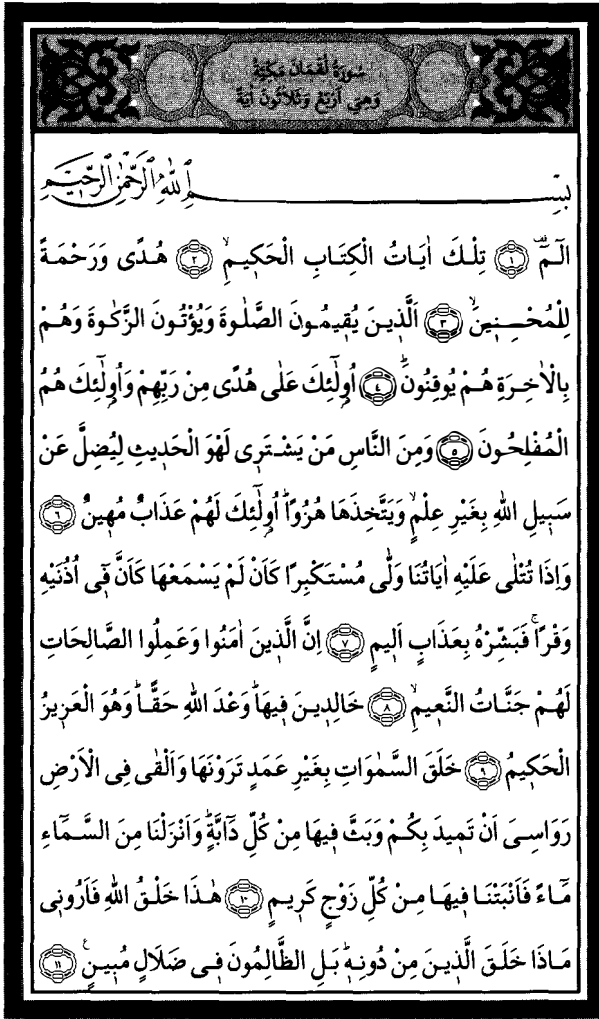 سُورَةُ لُقْمَانَ مَكِّيَّةٌ
وَهِيَ اَرْبَعٌ وَثَلَاثُونَ اٰيَةً
بِسْمِ اللّٰهِ الرَّحْمٰنِ الرَّحٖيمِ
الٓمٓۚ ﴿١﴾ تِلْكَ اٰيَاتُ الْكِتَابِ الْحَكٖيمِۙ ﴿٢﴾ هُدًى وَرَحْمَةً
لِلْمُحْسِنٖينَۙ ﴿٣﴾ اَلَّذٖينَ يُقٖيمُونَ الصَّلٰوةَ وَيُؤْتُونَ الزَّكٰوةَ وَهُمْ
بِالْاٰخِرَةِ هُمْ يُوقِنُونَۜ ﴿٤﴾ اُو۬لٰٓئِكَ عَلٰى هُدًى مِنْ رَبِّهِمْ وَاُو۬لٰٓئِكَ هُمُ
الْمُفْلِحُونَ ﴿٥﴾ وَمِنَ النَّاسِ مَنْ يَشْتَرٖى لَهْوَ الْحَدٖيثِ لِيُضِلَّ عَنْ
سَبٖيلِ اللّٰهِ بِغَيْرِ عِلْمٍۙ وَيَتَّخِذَهَا هُزُوًاۜ اُو۬لٰٓئِكَ لَهُمْ عَذَابٌ مُهٖينٌ ﴿٦﴾
وَاِذَا تُتْلٰى عَلَيْهِ اٰيَاتُنَا وَلّٰى مُسْتَكْبِرًا كَاَنْ لَمْ يَسْمَعْهَا كَاَنَّ فٖٓى اُذُنَيْهِ
وَقْرًاۚ فَبَشِّرْهُ بِعَذَابٍ اَلٖيمٍ ﴿٧﴾ اِنَّ الَّذٖينَ اٰمَنُوا وَعَمِلُوا الصَّالِحَاتِ
لَهُمْ جَنَّاتُ النَّعٖيمِۙ ﴿٨﴾ خَالِدٖينَ فٖيهَاۜ وَعْدَ اللّٰهِ حَقًّاۜ وَهُوَ الْعَزٖيزُ
الْحَكٖيمُ ﴿٩﴾ خَلَقَ السَّمٰوَاتِ بِغَيْرِ عَمَدٍ تَرَوْنَهَا وَاَلْقٰى فِى الْاَرْضِ
رَوَاسِىَ اَنْ تَمٖيدَ بِكُمْ وَبَثَّ فٖيهَا مِنْ كُلِّ دَٓابَّةٍۜ وَاَنْزَلْنَا مِنَ السَّمَٓاءِ
مَٓاءً فَاَنْبَتْنَا فٖيهَا مِنْ كُلِّ زَوْجٍ كَرٖيمٍ ﴿١٠﴾ هٰذَا خَلْقُ اللّٰهِ فَاَرُونٖى
مَاذَا خَلَقَ الَّذٖينَ مِنْ دُونِهٖۜ بَلِ الظَّالِمُونَ فٖى ضَلَالٍ مُبٖينٍۚ ﴿١١﴾